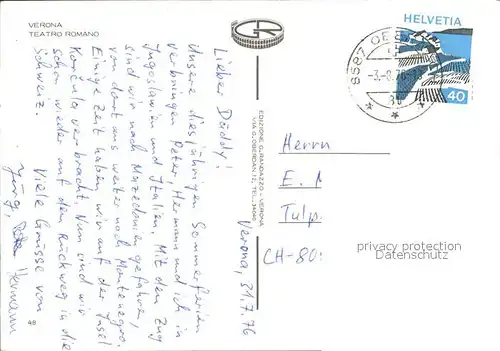 VERONA
TEATRO ROMANO
Verona, 31.7.76
Lieber Däddy!
Unsere diesjährigen Sommerferien
verbringen Peter, Hermann und ich in
Jugoslawien und Italien. Mit dem Zug
sind wir nach Mazedonien gefahren,
von dort aus weiter nach Montenegro.
Einige Zeit haben wir auf der Insel
Korčula verbracht. Nun sind wir
schon wieder auf dem Rückweg in die
Schweiz.
Viele Grüsse von
Jürg, Hermann
48
EDIZIONE G. RANDAZZO - VERONA
VIA G. OBERDAN, 12, TEL.
HELVETIA
40
8587
-3.-8.76-
Herrn
E. M
Tulp
CH-80
privacy protection
Datenschutz